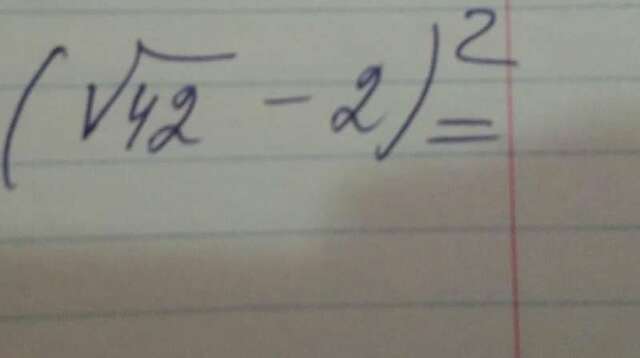 (√42 - 2)² =